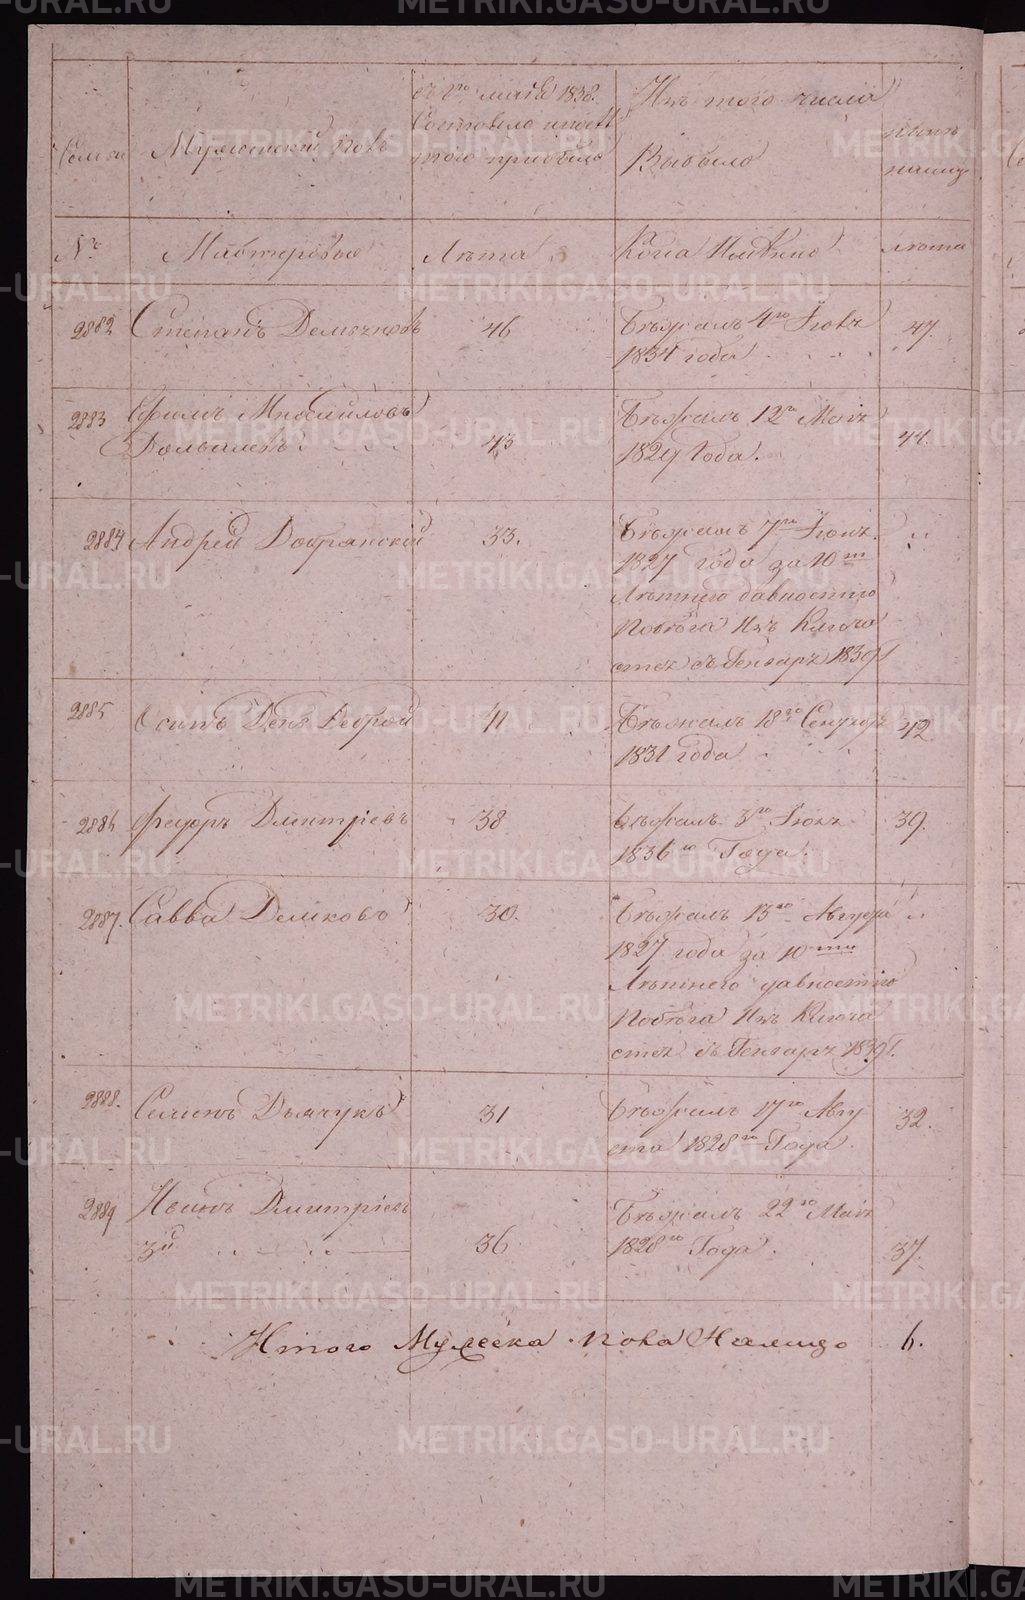 Семьи
Мужеский полъ
съ 1го мая 1838.
Состояло и послѣ
того прибыло
Изъ того числа
Выбыло
нынѣ
налицо
№
Мастеровые
Лѣта
Когда Имянно
лѣта
2882 Степанъ 46 Бѣжалъ 4го Іюня 47.
1834 года
2883 Ефимъ Михайловъ Бѣжалъ 12го Мая
43 1829 Года. 44.
2884 Андрей Добрянской 33. Бѣжалъ 7го Іюня
1827 года за 10ти
Лѣтнею давностію
Побѣга Изъ Ключа
стех съ Генваря 1839
2885 Осипъ 41 Бѣжалъ 18го Сентября 42
1831 года
2886 Федоръ Дмитріевъ 38 Бѣжалъ 3го Іюня 39.
1836го Года.
2887. Савва Деликовъ 30. Бѣжалъ 13го Августа
1827 года за 10ти
Лѣтнею давностію
Побѣга Изъ Ключа
стех съ Генваря 1839
2888. Семенъ Дьячукъ 31 Бѣжалъ 17го Авгу
ста 1828го Года. 32.
2889 Иванъ Дмитріевъ Бѣжалъ 22го Мая
3й 36 1828го Года. 37.
Итого Мужеска пола Налицо 6.
METRIKI.GASO-URAL.RU